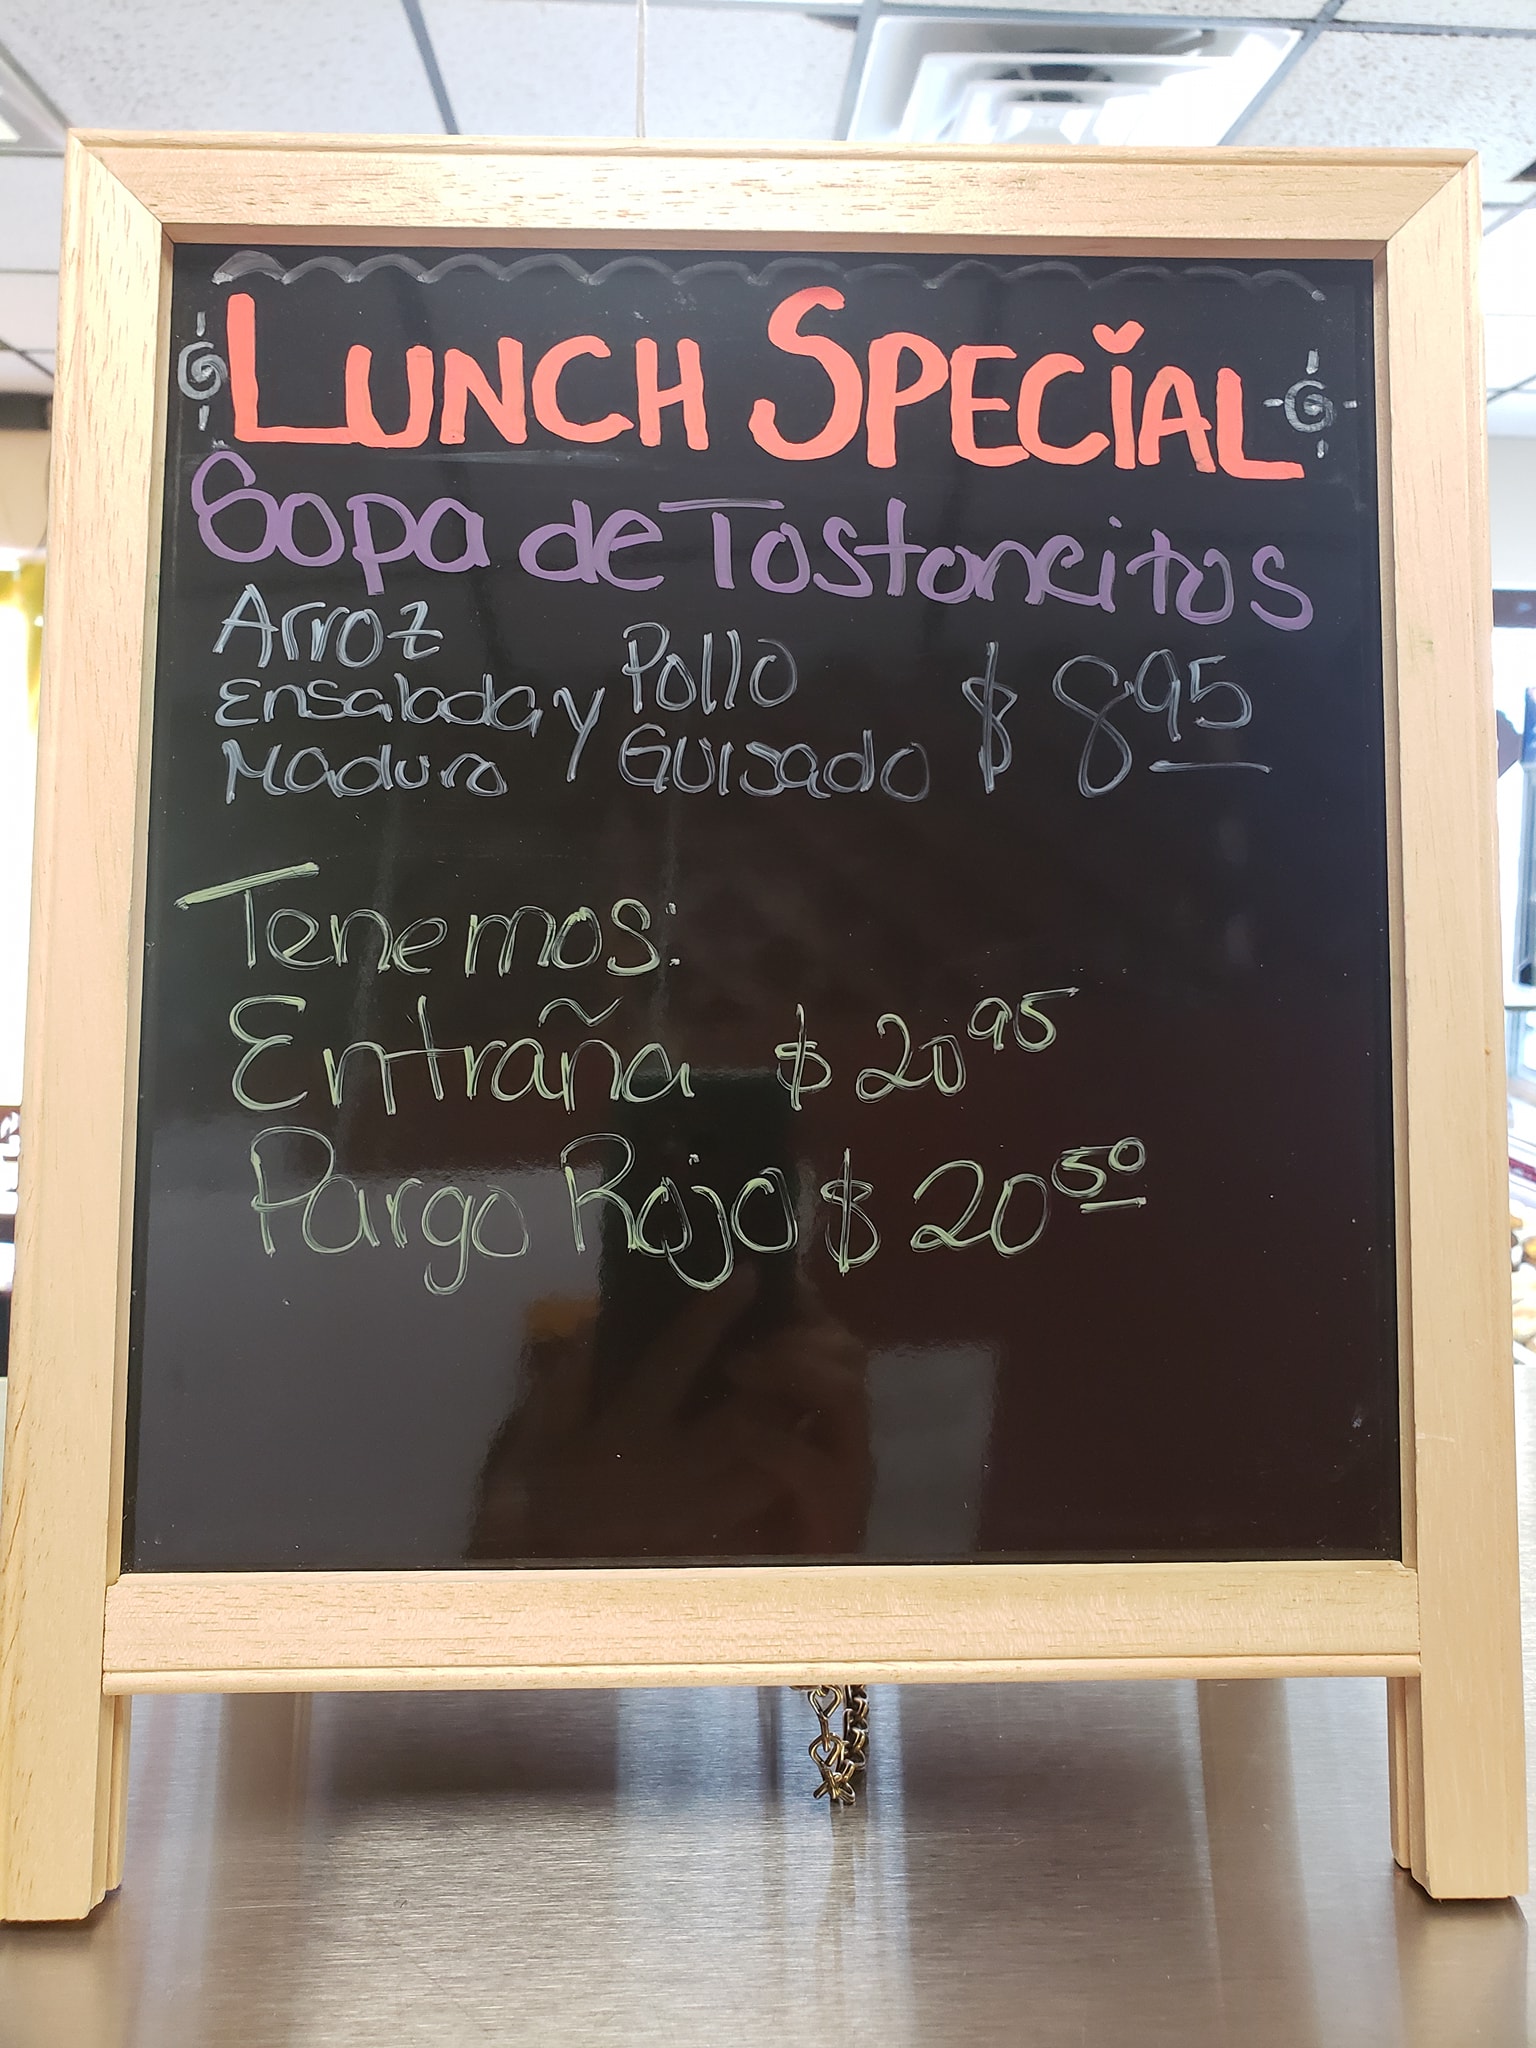 LUNCH SPECIAL
Sopa de Tostoncitos
Arroz
Ensalada y Pollo $ 8.95
Maduro Guisado
Tenemos:
Entraña $ 20 95
Pargo Rojo $ 20 50